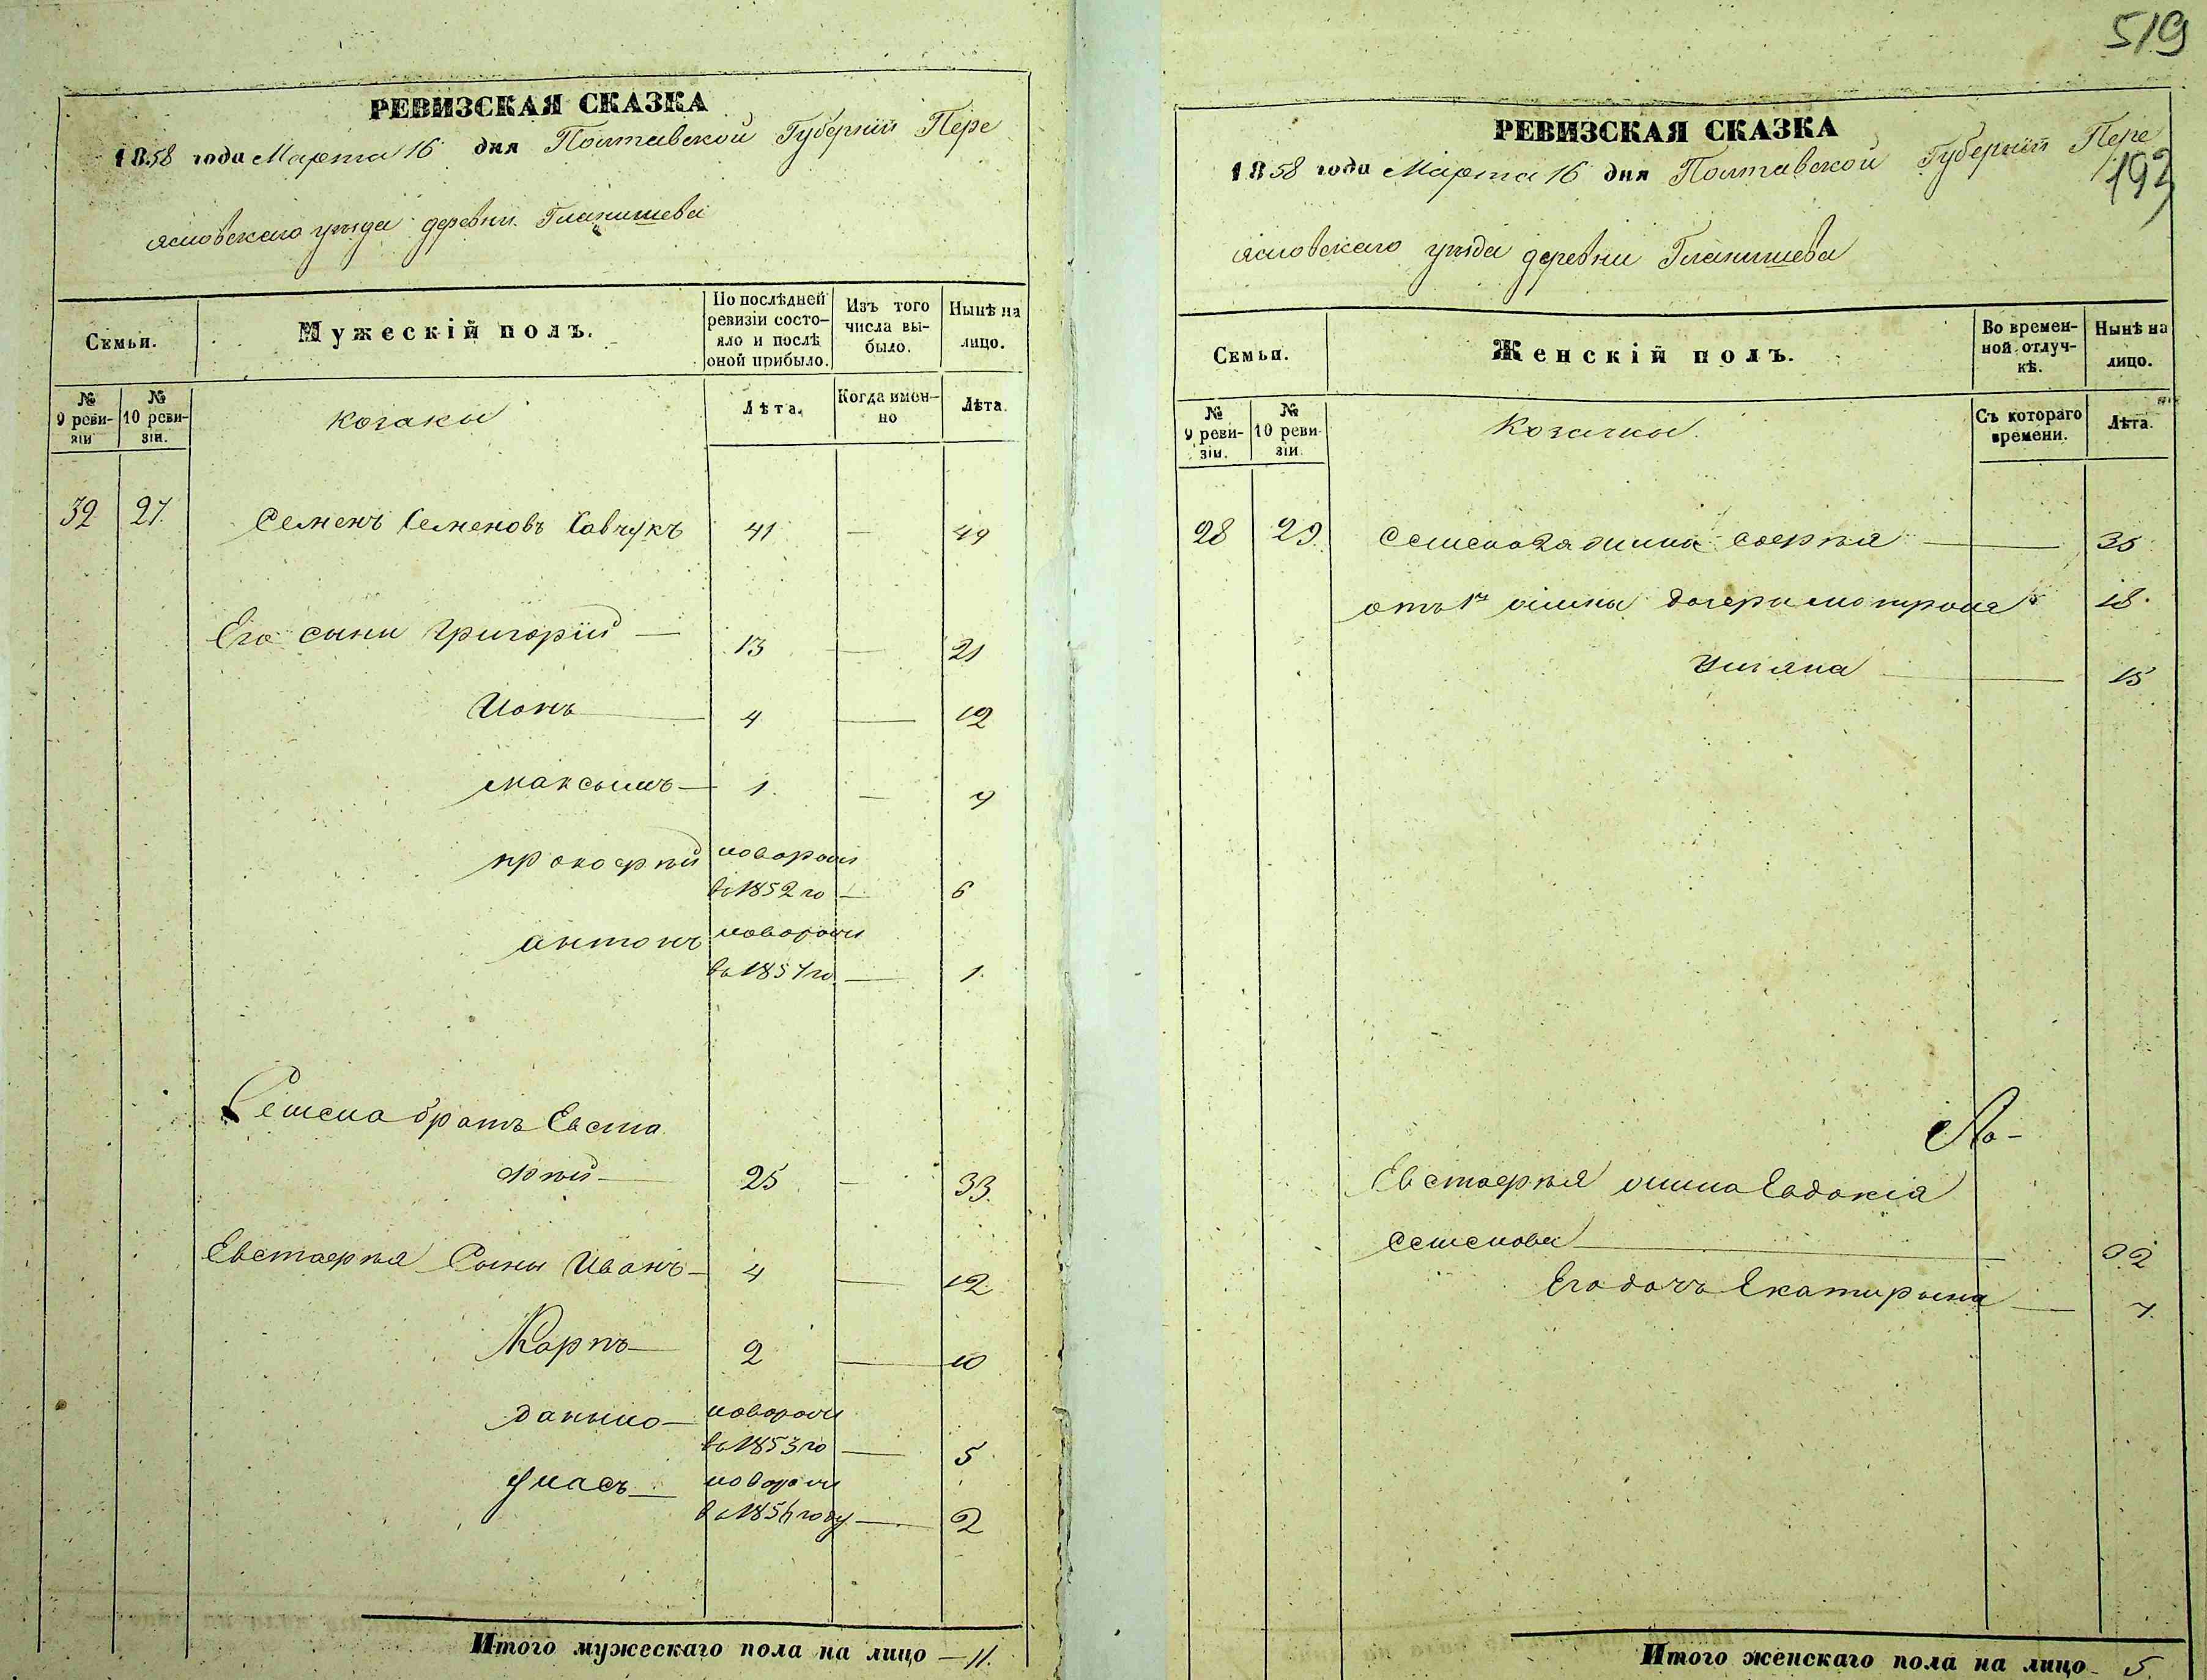 519
РЕВИЗСКАЯ СКАЗКА
1858 года Марта 16 дня Полтавской Губерніи Пере
яславскаго уѣзда деревни Гланишева
Семьи.
Мужескій полъ.
По послѣдней ревизіи состо-
яло и послѣ оной прибыло.
Изъ того числа вы-
было.
Нынѣ на лицо.
№ 9 реви-
зіи
№ 10 реви-
зіи.
козаки
Лѣта.
Когда имен-
но
Лѣта.
32 27. Семенъ Семеновъ Савчукъ 41 — 49
Его сыни Григорій — 13 — 21
Іонъ — 4 — 12
максымъ — 1. — 9
прокофѣй новорож
въ 1852 го — 6
антонъ новорож
въ 1857 го. — 1.
Семена братъ Евста
фѣй — 25 — 33.
Евстафѣя Сыны Иванъ — 4 — 12
Карпъ — 2 — 10
даныло — новорож
въ 1853 го — 5
улась — новорож
въ 1856 году — 2
Итого мужескаго пола на лицо — 11.
РЕВИЗСКАЯ СКАЗКА
1858 года Марта 16 дня Полтавской Губерніи Пере
192
яславскаго уѣзда деревни Гланишева
Семьи.
Женскій полъ.
Во времен-
ной отлуч-
кѣ.
Нынѣ на лицо.
№ 9 реви-
зіи.
№ 10 реви-
зіи.
Козачки.
Съ котораго времени.
Лѣта.
28 29. Семена 2я жина софѣя — 35
отъ 1й жины дочери мотрона 18.
уліяна — 15
Евстафѣя жина Евдокія
Семенова — 32
Его дочъ Екатирына — 7.
Итого женскаго пола на лицо — 5.